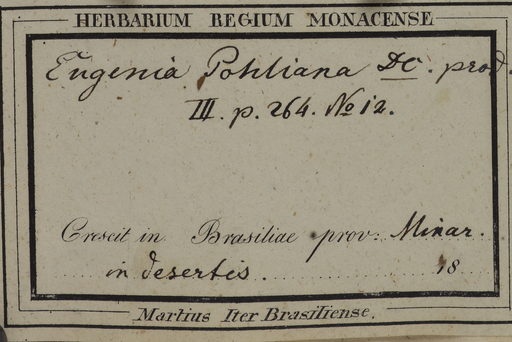 HERBARIUM REGIUM MONACENSE
Eugenia Pohliana DC. prod.
III. p. 264. No 12.
Crescit in Brasiliae prov. Minar.
in desertis. 18
Martius Iter Brasiliense.